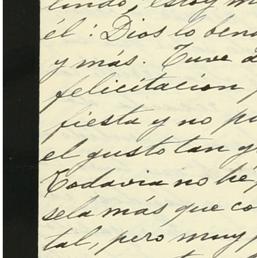 lindo, estoy m
él: Dios lo ben
y más. Tuve d
felicitacion
fiesta y no pu
el gusto tan g
Todavia no hé
sela más que co
tal, pero muy